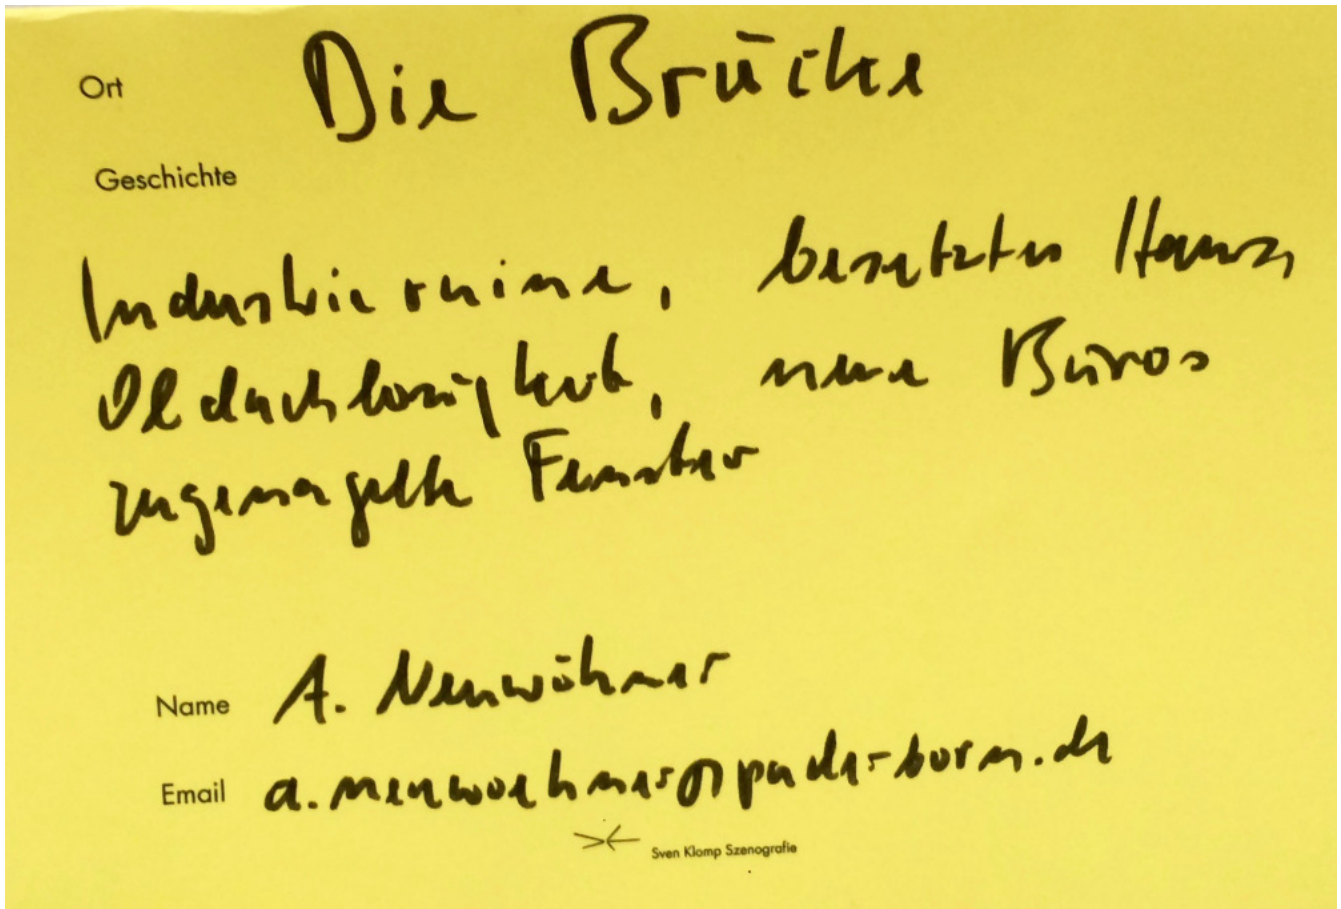 Ort Die Brücke
Geschichte
Industrieruine, besetztes Haus,
Obdachlosigkeit, neue Büros
zugenagelte Fenster
Name A. Neuwöhner
Email a.neuwoehner@pader-born.de
Sven Klomp Szenografie